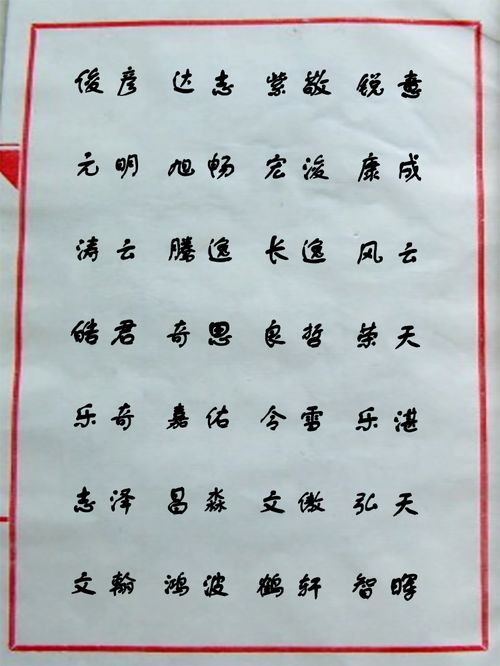 俊彦 达志 紫敬 锐意
元明 旭畅 宏浚 康成
涛云 腾逸 长逸 风云
皓君 奇思 良哲 荣天
乐奇 嘉佑 令雪 乐湛
志泽 昌淼 文傲 弘天
文翰 鸿波 鹤轩 智晖